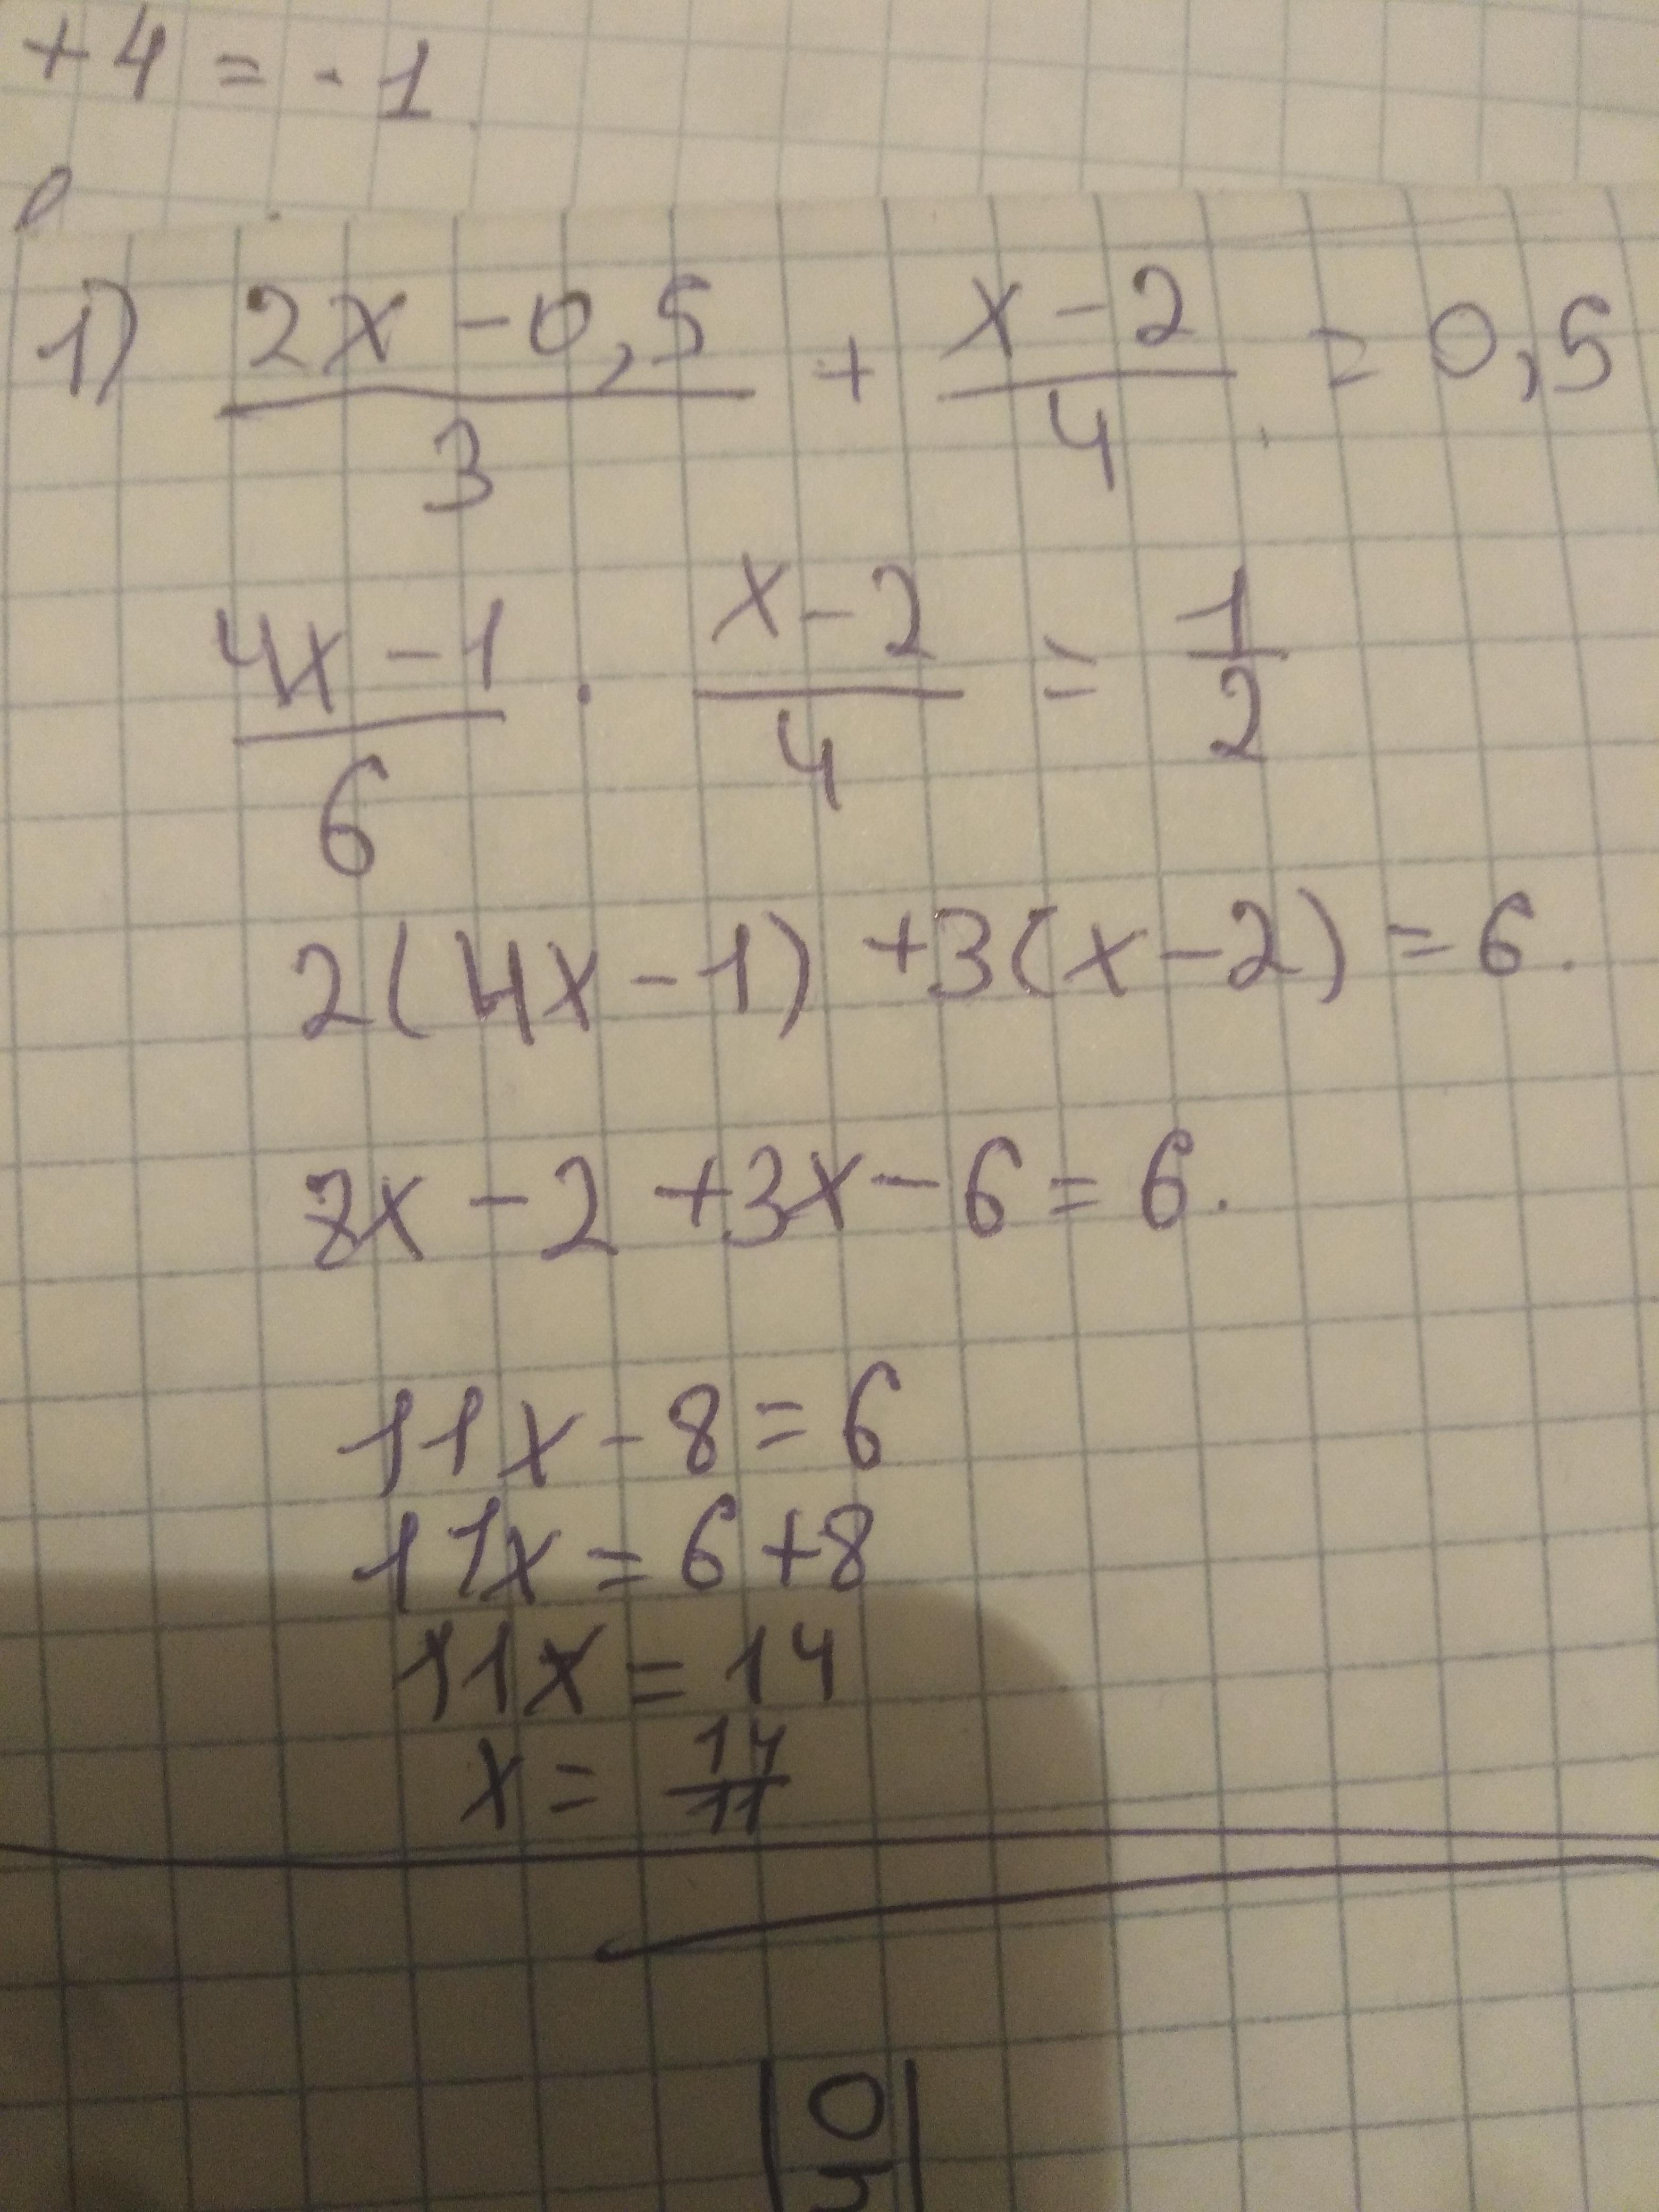 +4 = -1
1) (2x-0,5)/3 + (x-2)/4 = 0,5
(4x-1)/6 · (x-2)/4 = 1/2
2(4x-1) +3(x-2) = 6.
8x - 2 +3x - 6 = 6.
11x - 8 = 6
11x = 6 +8
11x = 14
x = 14/11